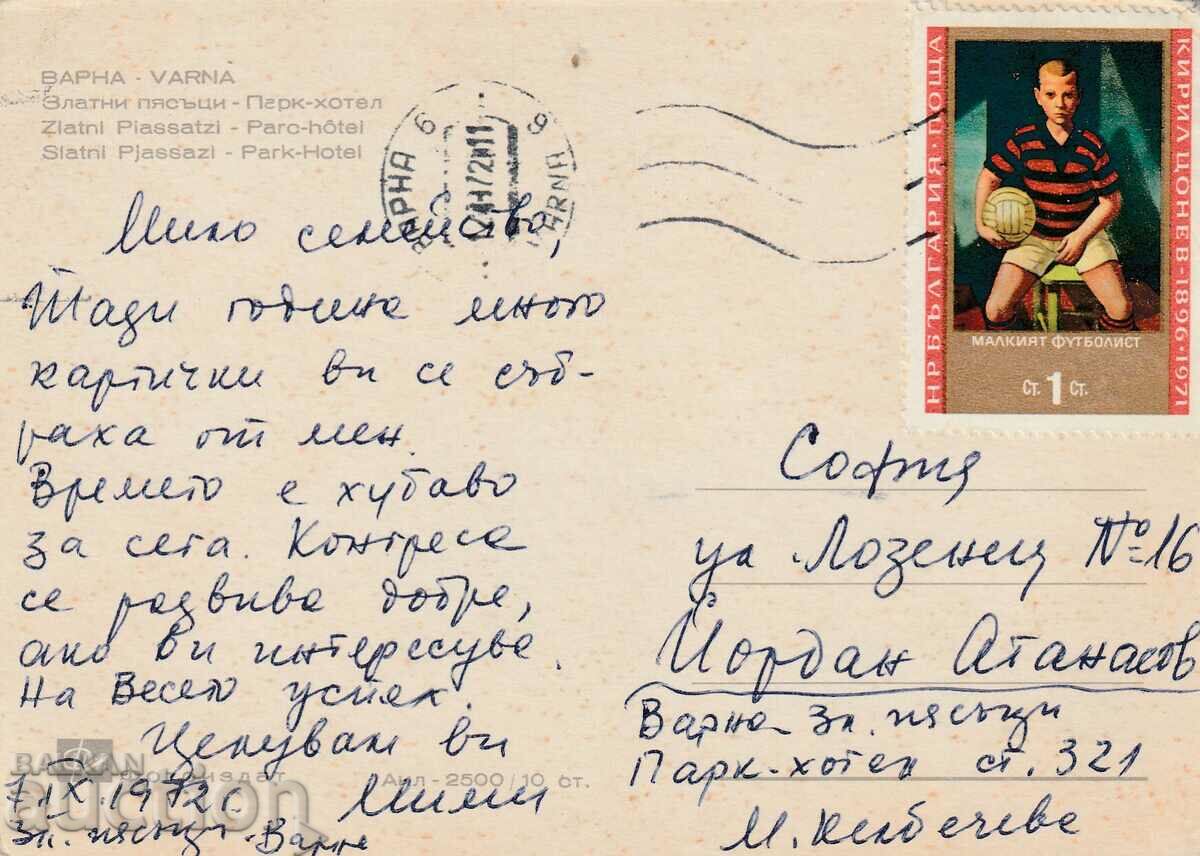 ВАРНА - VARNA
Златни пясъци - Парк-хотел
Zlatni Piassatzi - Parc-hôtel
Slatni Pjassazi - Park-Hotel
ВАРНА 6
6 VARNA
НР БЪЛГАРИЯ·ПОЩА
КИРИЛ ЦОНЕВ·1896·1971
МАЛКИЯТ ФУТБОЛИСТ
СТ. 1 СТ.
Мило семейство,
Тази година много
картички ви се съб-
раха от мен.
Времето е хубаво
за сега. Конгреса
се развива добре,
ако ви интересува.
На Весето успех.
Целувам ви
Мими
7.IX.1972г.
Зл. пясъци - Варна
София
ул. Лозенец №16
Йордан Атанасов
Варна - Зл. пясъци
Парк-хотел ст. 321
М.
Фотоиздат
Акл - 2500/10 ст.
BALKAN
auction